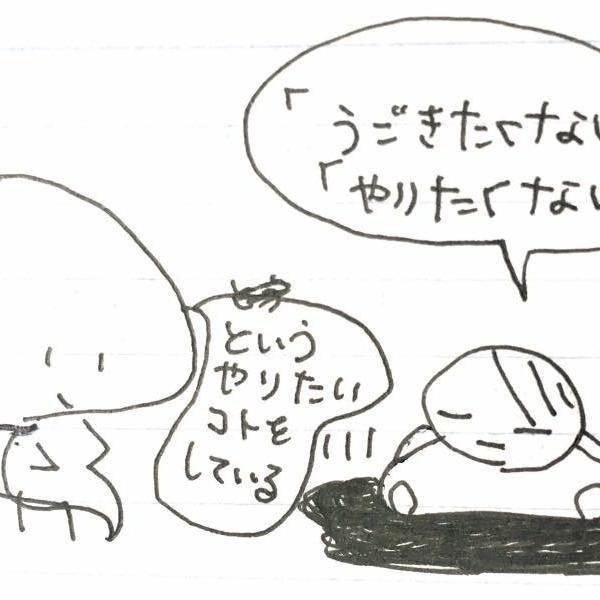 「うごきたくない
「やりたくない
という
やりたい
コトを
している